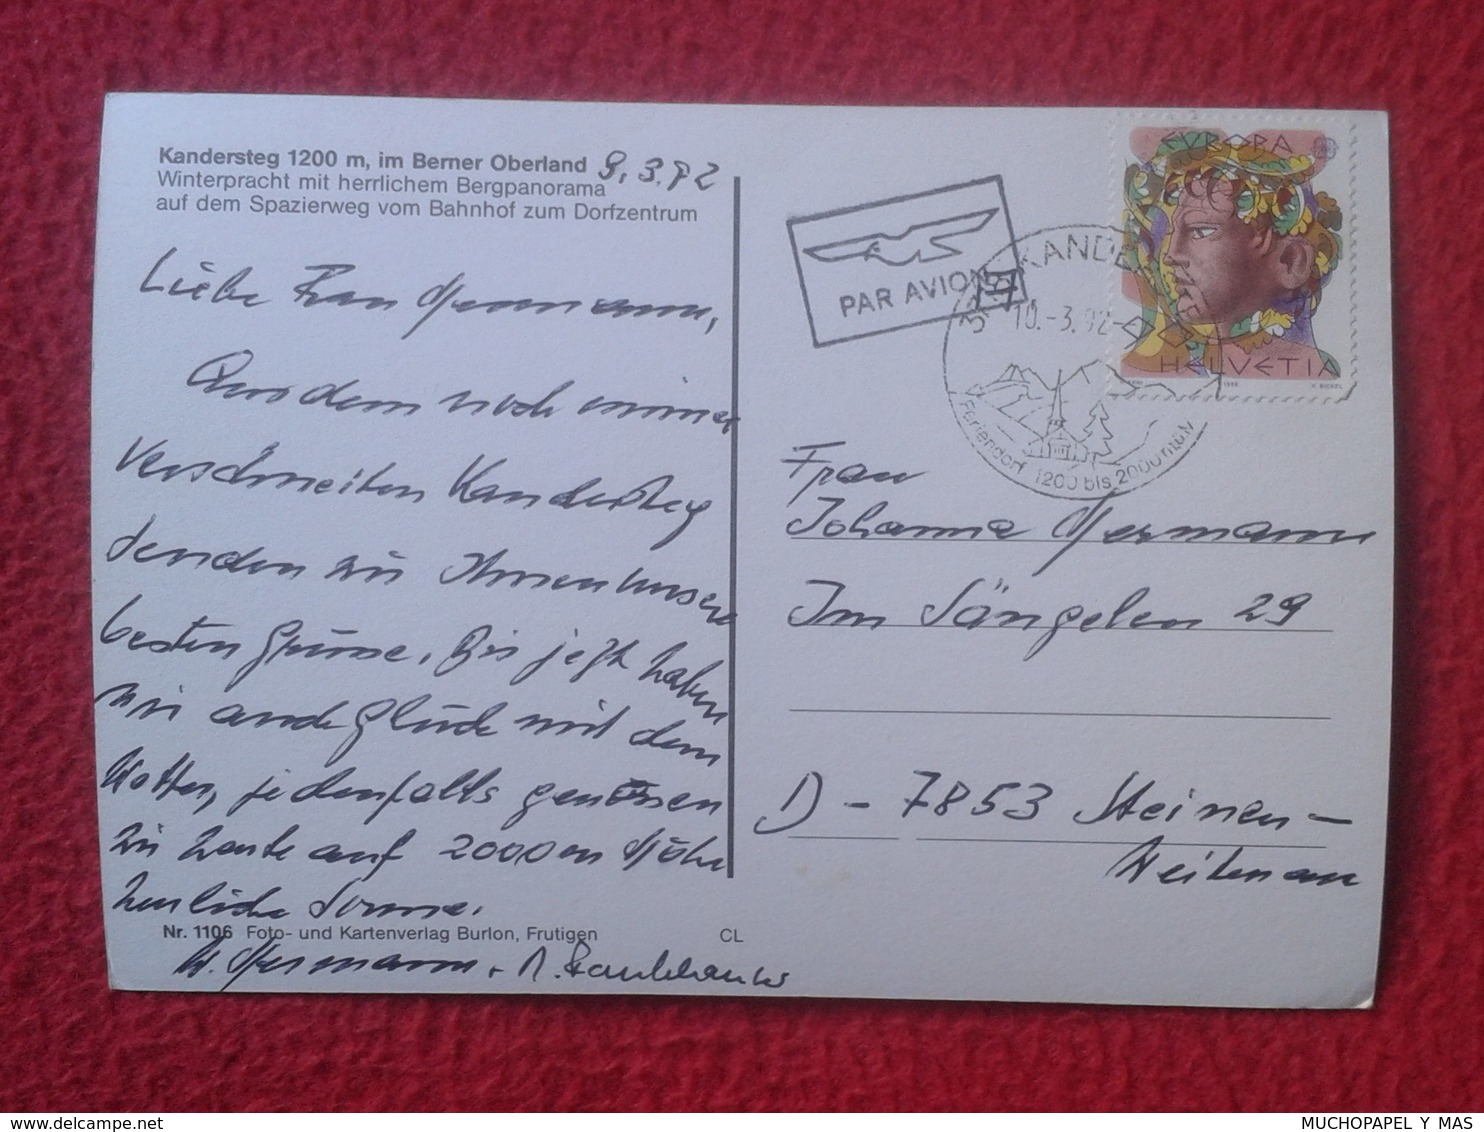 Kandersteg 1200 m, im Berner Oberland 9.3.92
Winterpracht mit herrlichem Bergpanorama
auf dem Spazierweg vom Bahnhof zum Dorfzentrum
Liebe Frau Hermann,
Aus dem noch immer
verschneiten Kandersteg
senden wir Ihnen unsere
besten Grüsse. Bis jetzt haben
wir auch Glück mit dem
Wetter, jedenfalls geniessen
wir heute auf 2000 m Höhe
herrliche Sonne.
Nr. 1106 Foto- und Kartenverlag Burlon, Frutigen CL
W. Hermann +
PAR AVION
KANDE
10.-3.92-
Feriendorf 1200 bis 2000 m.ü.M
EVROPA
HELVETIA
Frau
Johanna Hermann
Im Sängelen 29
D - 7853 Steinen-
Weitenau
MUCHOPAPEL Y MAS